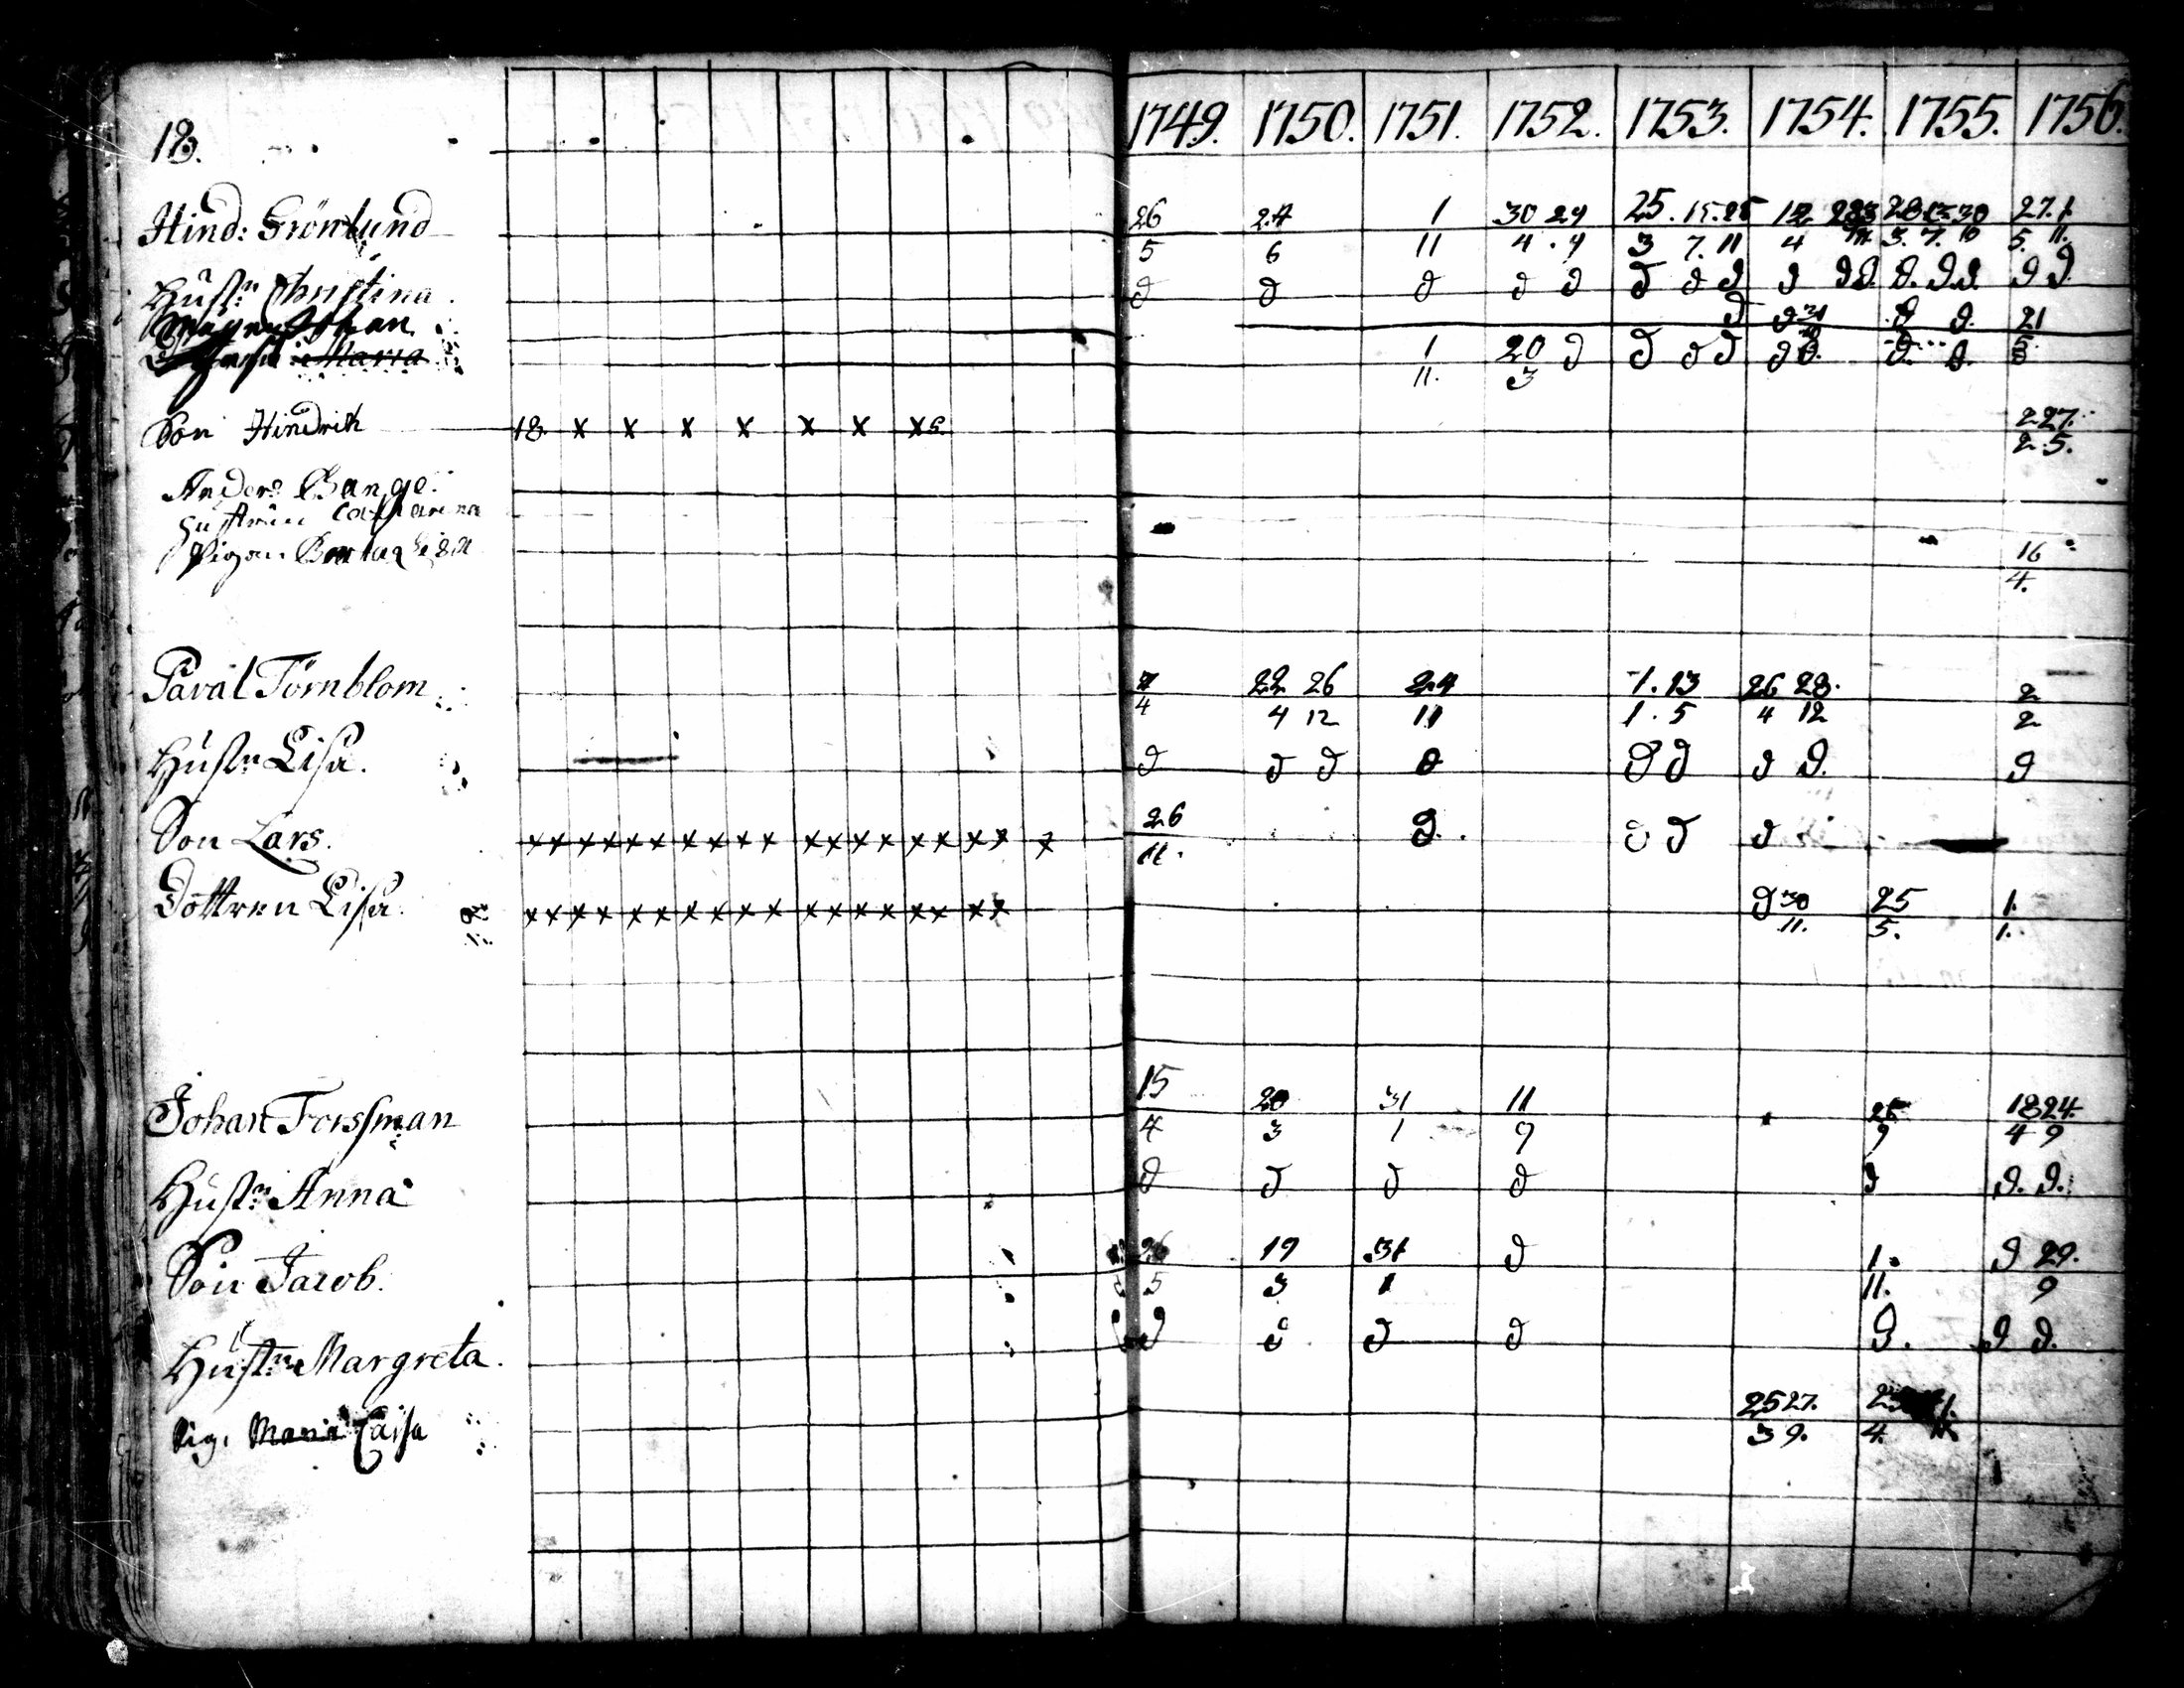 18.
1749. 1750. 1751. 1752. 1753. 1754. 1755. 1756.
Hind: Grönlund 26/5 24/6 1/11 30/4 29/9 25/3 15/7 25/11 12/4 27.1/5. 11.
Hustr Christina. D D D D D D D D D D D D. D.D. D D.
Johan. D D D. D. 21/5
Maria 1/11. 20/3 D D D D D D. D. D.
Son Hindrik 18. x x x x x x x 2 27./2. 5.
Anders Bange.
Hustrun Catharina
Pigan 16/4.
Pavál Törnblom 7/4 22 26/4 12 24/11 1. 13/1. 5 26 28./4 12 2/2
Hustr Lisa. D D D D D D D D. D
Son Lars. x x x x x x x x x x x x x x x x x x x 26/11. D. D D D
Dottren Lisa. x x x x x x x x x x x x x x x x x x D 30/11. 25/5. 1./1.
Johan Forssman 15/4 20/3 31/1 11/9 25/9 18 24/4 9
Hustr Anna D D D D D D. D.
Son Jacob. 26/5 19/3 31/1 D 1./11. D 29./9
Hustr Margreta. D D D D D. D D.
Pig. Maria Caisa 25 27./3 9. 4.